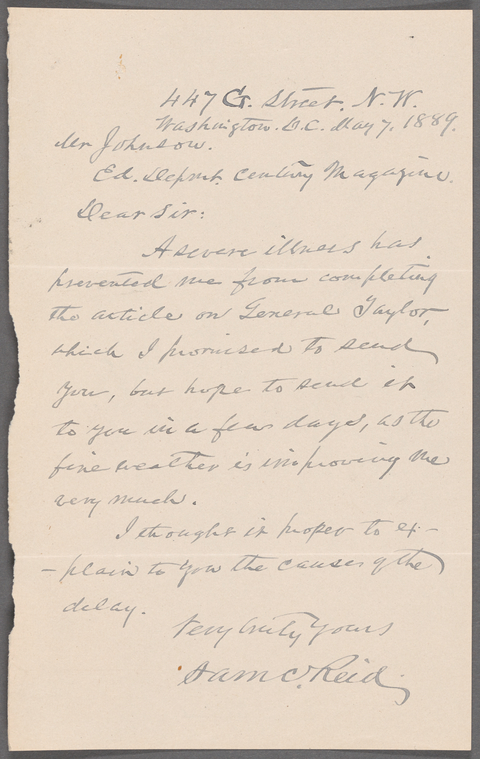 447 G. Street. N.W.
Washington. D.C. May 7, 1889.
Mr Johnson.
Ed. Depmt. Century Magazine.
Dear Sir:
A severe illness has
prevented me from completing
the article on General Taylor,
which I promised to send
you, but hope to send it
to you in a few days, as the
fine weather is improving me
very much.
I thought it proper to ex-
-plain to you the causes of the
delay.
Very truly Yours
Sam C. Reid.